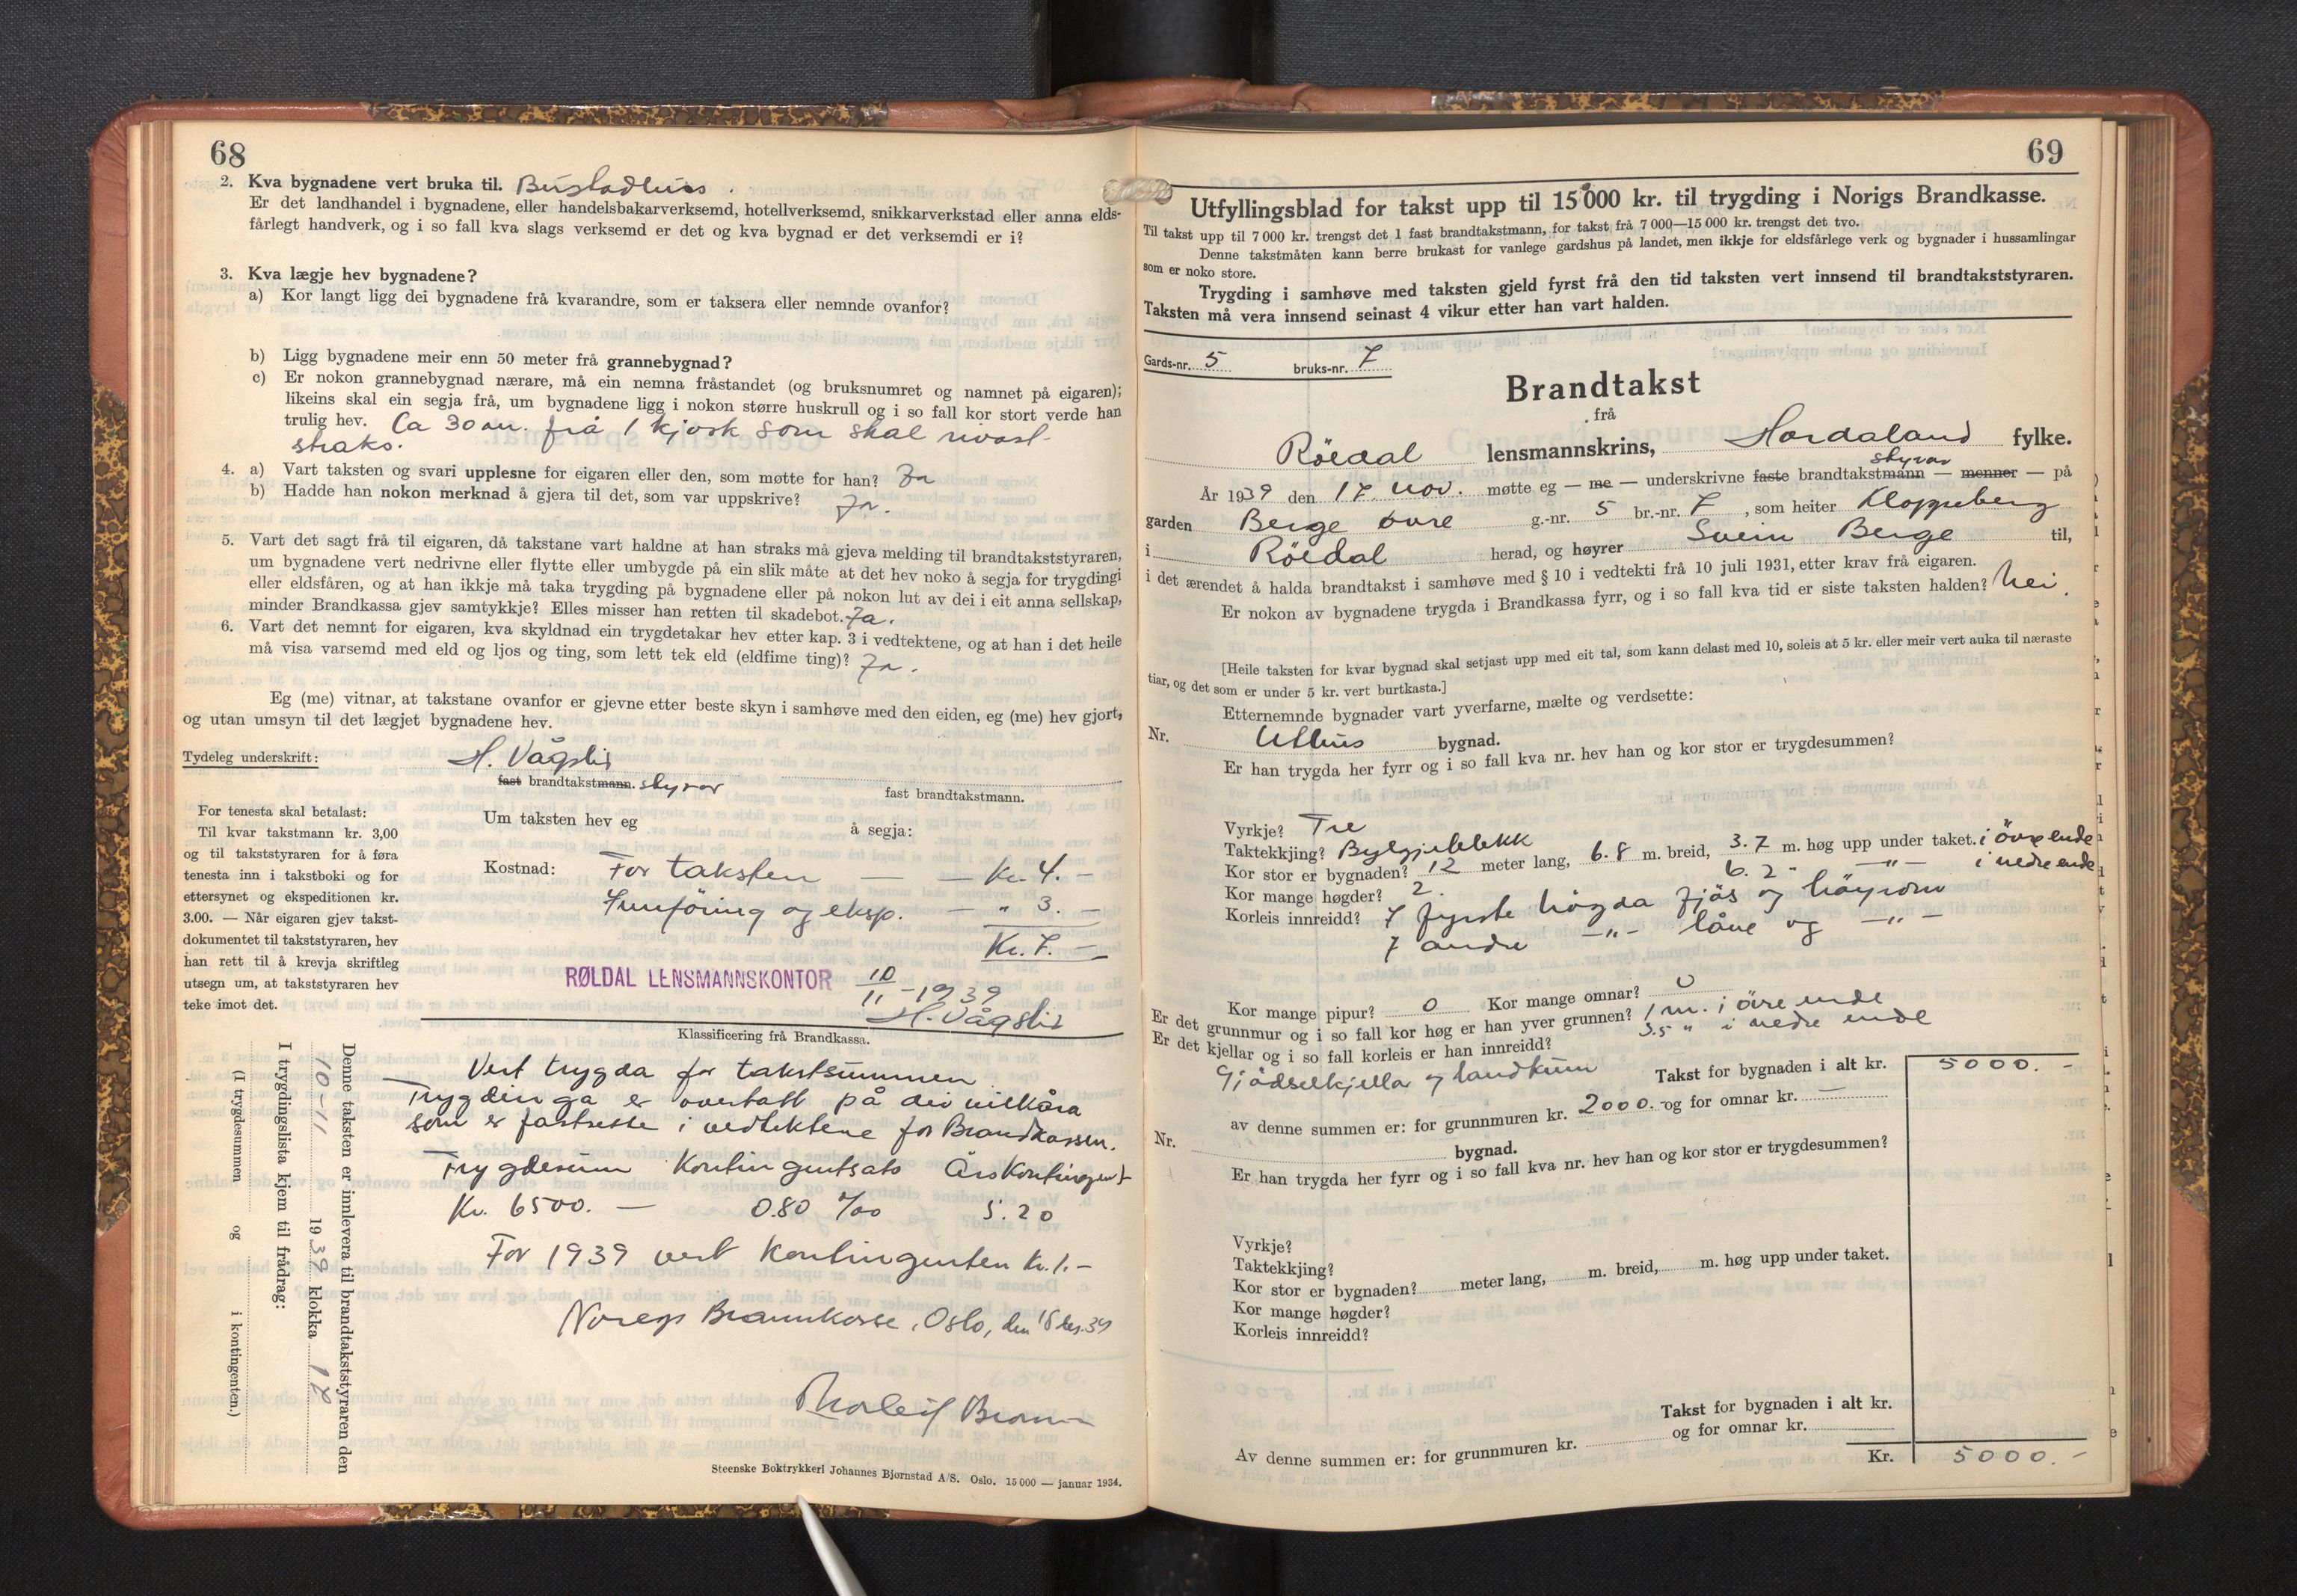 68
2. Kva bygnadene vert bruka til. Bustadhus.
Er det landhandel i bygnadene, eller handelsbakarverksemd, hotellverksemd, snikkarverkstad eller anna elds-
fårlegt handverk, og i so fall kva slags verksemd er det og kva bygnad er det verksemdi er i?
3. Kva lægje hev bygnadene?
a) Kor langt ligg dei bygnadene frå kvarandre, som er taksera eller nemnde ovanfor?
b) Ligg bygnadene meir enn 50 meter frå grannebygnad?
c) Er nokon grannebygnad nærare, må ein nemna fråstandet (og bruksnumret og namnet på eigaren);
likeins skal ein segja frå, um bygnadene ligg i nokon større huskrull og i so fall kor stort verde han
trulig hev. Ca 30 m. frå 1 kjosk som skal rivast
straks.
4. a) Vart taksten og svari upplesne for eigaren eller den, som møtte for han? Ja
b) Hadde han nokon merknad å gjera til det, som var uppskrive? Ja.
5. Vart det sagt frå til eigaren, då takstane vart haldne at han straks må gjeva melding til brandtakststyraren,
um bygnadene vert nedrivne eller flytte eller umbygde på ein slik måte at det hev noko å segja for trygdingi
eller eldsfåren, og at han ikkje må taka trygding på bygnadene eller på nokon lut av dei i eit anna sellskap,
minder Brandkassa gjev samtykkje? Elles misser han retten til skadebot. Ja.
6. Vart det nemnt for eigaren, kva skyldnad ein trygdetakar hev etter kap. 3 i vedtektene, og at han i det heile
må visa varsemd med eld og ljos og ting, som lett tek eld (eldfime ting)? Ja.
Eg (me) vitnar, at takstane ovanfor er gjevne etter beste skyn i samhøve med den eiden, eg (me) hev gjort,
og utan umsyn til det lægjet bygnadene hev.
Tydeleg underskrift: H. Vågslid
fast brandtakstmann. styrar
fast brandtakstmann.
For tenesta skal betalast:
Til kvar takstmann kr. 3,00
og til takststyraren for å føra
tenesta inn i takstboki og for
ettersynet og ekspeditionen kr.
3.00. — Når eigaren gjev takst-
dokumentet til takststyraren, hev
han rett til å krevja skriftleg
utsegn um, at takststyraren hev
teke imot det.
Um taksten hev eg å segja:
Kostnad: For taksten — — Kr. 4. —
Innföring og eksp. — " 3. —
Kr. 7. —
RØLDAL LENSMANNSKONTOR 10/11 - 1939
H. Vågslid
Klassificering frå Brandkassa.
Vert trygda for takstsummen
Trygdinga er overtatt på dei vilkåra
som er fastsette i vedtektene for Brandkassen.
Trygdesum Kontingentsats Årskontingent
Kr. 6500. — 0.80 ‰ 5.20
For 1939 vert kontingenten kr. 1. —
Noregs Brannkasse, Oslo, den 18 des. 39
Thorleif
Denne taksten er innlevera til brandtakststyraren den
10-11 1939 klokka 12
I trygdingslista kjem til frådrag:
(I trygdesummen og i kontingenten.)
Steenske Boktrykkeri Johannes Bjørnstad A/S. Oslo. 15 000 — januar 1934.
69
Utfyllingsblad for takst upp til 15 000 kr. til trygding i Norigs Brandkasse.
Til takst upp til 7 000 kr. trengst det 1 fast brandtakstmann, for takst frå 7 000—15 000 kr. trengst det tvo.
Denne takstmåten kann berre brukast for vanlege gardshus på landet, men ikkje for eldsfårlege verk og bygnader i hussamlingar
som er noko store.
Trygding i samhøve med taksten gjeld fyrst frå den tid taksten vert innsend til brandtakststyraren.
Taksten må vera innsend seinast 4 vikur etter han vart halden.
Gards-nr. 5 bruks-nr. 7
Brandtakst
frå
Röldal lensmannskrins, Hordaland fylke.
styrar
År 1939 den 17. nov. møtte eg — me — underskrivne faste brandtakstmann — menner — på
garden Berge övre g.-nr. 5 br.-nr. 7, som heiter Kloppeberg
i Röldal herad, og høyrer Svein Berge til,
i det ærendet å halda brandtakst i samhøve med § 10 i vedtekti frå 10 juli 1931, etter krav frå eigaren.
Er nokon av bygnadene trygda i Brandkassa fyrr, og i so fall kva tid er siste taksten halden? Nei.
[Heile taksten for kvar bygnad skal setjast upp med eit tal, som kann delast med 10, soleis at 5 kr. eller meir vert auka til næraste
tiar, og det som er under 5 kr. vert burtkasta.]
Etternemnde bygnader vart yverfarne, mælte og verdsette:
Nr. Uthus bygnad.
Er han trygda her fyrr og i so fall kva nr. hev han og kor stor er trygdesummen?
Vyrkje? Tre
Taktekkjing? Bylgjeblekk
Kor stor er bygnaden? 12 meter lang, 6.8 m. breid, 3.7 m. høg upp under taket. i övre ende
6.2 - —"— i nedre ende
Kor mange høgder? 2.
Korleis innreidd? I fyrste högda fjös og höyrom
I andre —"— låve og —"—
Kor mange pipur? 0 Kor mange omnar? 0
Er det grunnmur og i so fall kor høg er han yver grunnen? 1 m. i övre ende
3.5 " i nedre ende
Er det kjellar og i so fall korleis er han innreidd?
Gjödselkjellar og landkum Takst for bygnaden i alt kr. 5000. -
av denne summen er: for grunnmuren kr. 2000. - og for omnar kr. —
Nr. bygnad.
Er han trygda her fyrr og i so fall kva nr. hev han og kor stor er trygdesummen?
Vyrkje?
Taktekkjing?
Kor stor er bygnaden? meter lang, m. breid, m. høg upp under taket.
Kor mange høgder?
Korleis innreidd?
Takst for bygnaden i alt kr.
Av denne summen er: for grunnmuren kr. og for omnar kr.
Kr. 5000. -